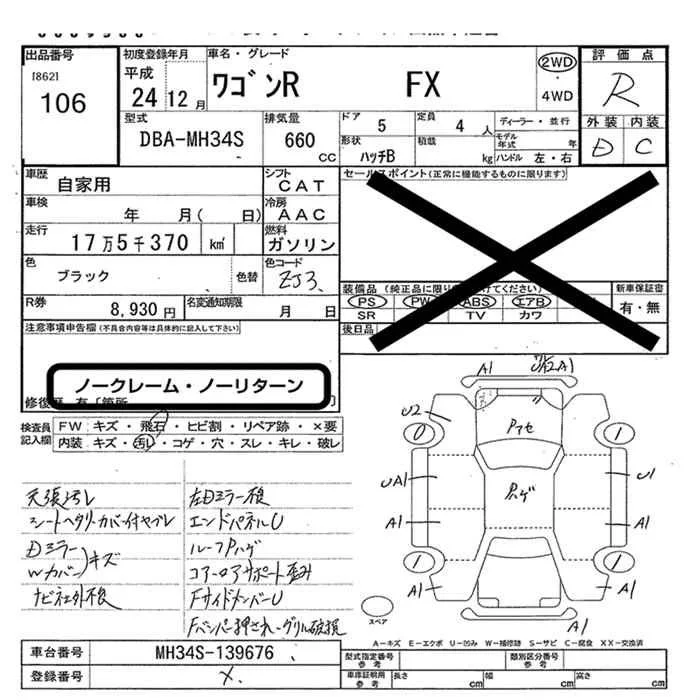 出品番号
[862]
106
初度登録年月
平成
24 12月
車名・グレード
ワゴンR FX
2WD
・
4WD
評価点
R
外装 内装
D C
型式
DBA-MH34S
排気量
660 CC
ドア 5
定員 4 人
ディーラー・並行
形状 ハッチB
積載 kg
モデル年式 年
ハンドル 左・右
車歴
自家用
シフト
CAT
セールスポイント(正常に機能するものに限ります)
車検
年 月( 日)
冷房
AAC
走行
17万5千370 km
燃料
ガソリン
色
ブラック
色替
色コード
ZJ3
装備品 (純正品に限り
けてください)
新車保証書
PS PW ABS エアB
有・無
SR TV カワ
R券
8,930円
名変通知期限
月 日
後日品
注意事項申告欄(不具合内容等は具体的に記入して下さい)
ノークレーム・ノーリターン
修復歴 有〔箇所
検査員
記入欄
FW キズ・飛石・ヒビ割・リペア跡・×要
内装 キズ・汚レ・コゲ・穴・スレ・キレ・破レ
天張汚レ
シートヘタリ・カバー付ヤブレ
Dミラー
Wカバー
キズ
ナビ社外後
左Dミラー後
エンドパネルU
ルーフPハゲ
コアーロアサポート歪み
FサイドメンバーU
Fバンパー押され・グリル破損
A1
U2
Pアセ
0
1
UA1
Pハゲ
U1
A1
A1
1
1
A1
A1
A1
スペア
A-キズ E-エクボ U-凹み W-補修跡 S-サビ C-腐食 XX-交換済
車台番号
MH34S-139676
登録番号
×
型式指定番号
参考
類別区分番号
参考
車庫証明用
参考
長さ cm
幅 cm
高さ cm